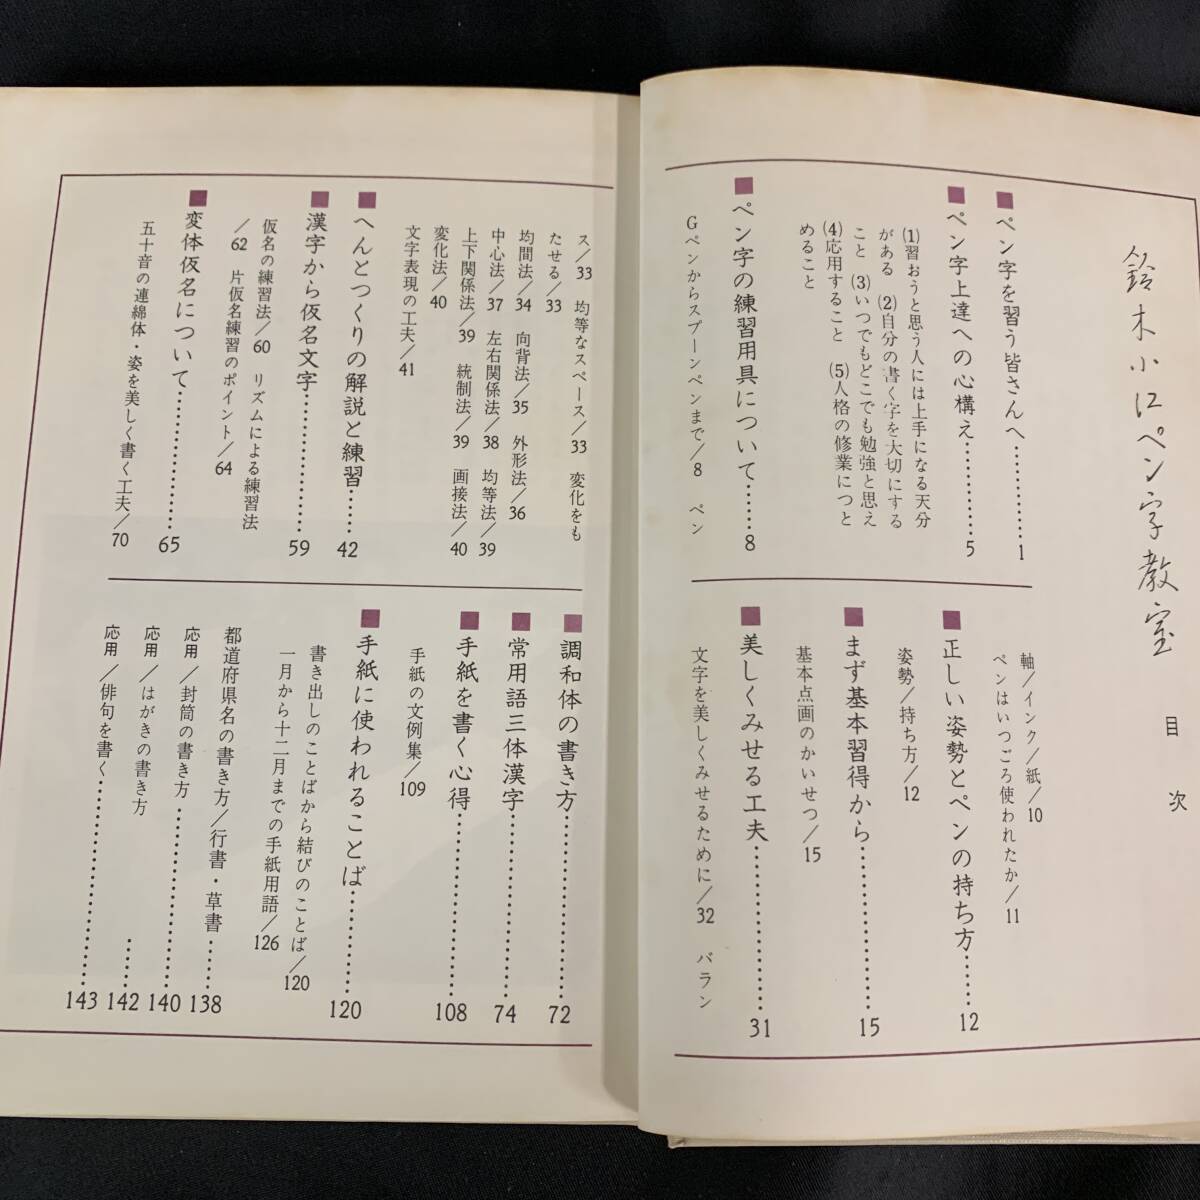 鈴木小江ペン字教室
目次
■ペン字を習う皆さんへ…………1
■ペン字上達への心構え…………5
(1)習おうと思う人には上手になる天分
がある (2)自分の書く字を大切にする
こと (3)いつでもどこでも勉強と思え
(4)応用すること (5)人格の修業につと
めること
■ペン字の練習用具について……8
Gペンからスプーンペンまで/8 ペン
軸/インク/紙/10
ペンはいつごろ使われたか/11
■正しい姿勢とペンの持ち方……12
姿勢/持ち方/12
■まず基本習得から…………15
基本点画のかいせつ/15
■美しくみせる工夫…………31
文字を美しくみせるために/32 バラン
ス/33 均等なスペース/33 変化をも
たせる/33
均間法/34 向背法/35 外形法/36
中心法/37 左右関係法/38 均等法/39
上下関係法/39 統制法/39 画接法/40
変化法/40
文字表現の工夫/41
■へんとつくりの解説と練習……42
■漢字から仮名文字…………59
仮名の練習法/60 リズムによる練習法
/62 片仮名練習のポイント/64
■変体仮名について…………65
五十音の連綿体・姿を美しく書く工夫/70
■調和体の書き方…………72
■常用語三体漢字…………74
■手紙を書く心得…………108
手紙の文例集/109
■手紙に使われることば…………120
書き出しのことばから結びのことば/120
一月から十二月までの手紙用語/126
都道府県名の書き方/行書・草書……138
応用/封筒の書き方…………140
応用/はがきの書き方……142
応用/俳句を書く…………143